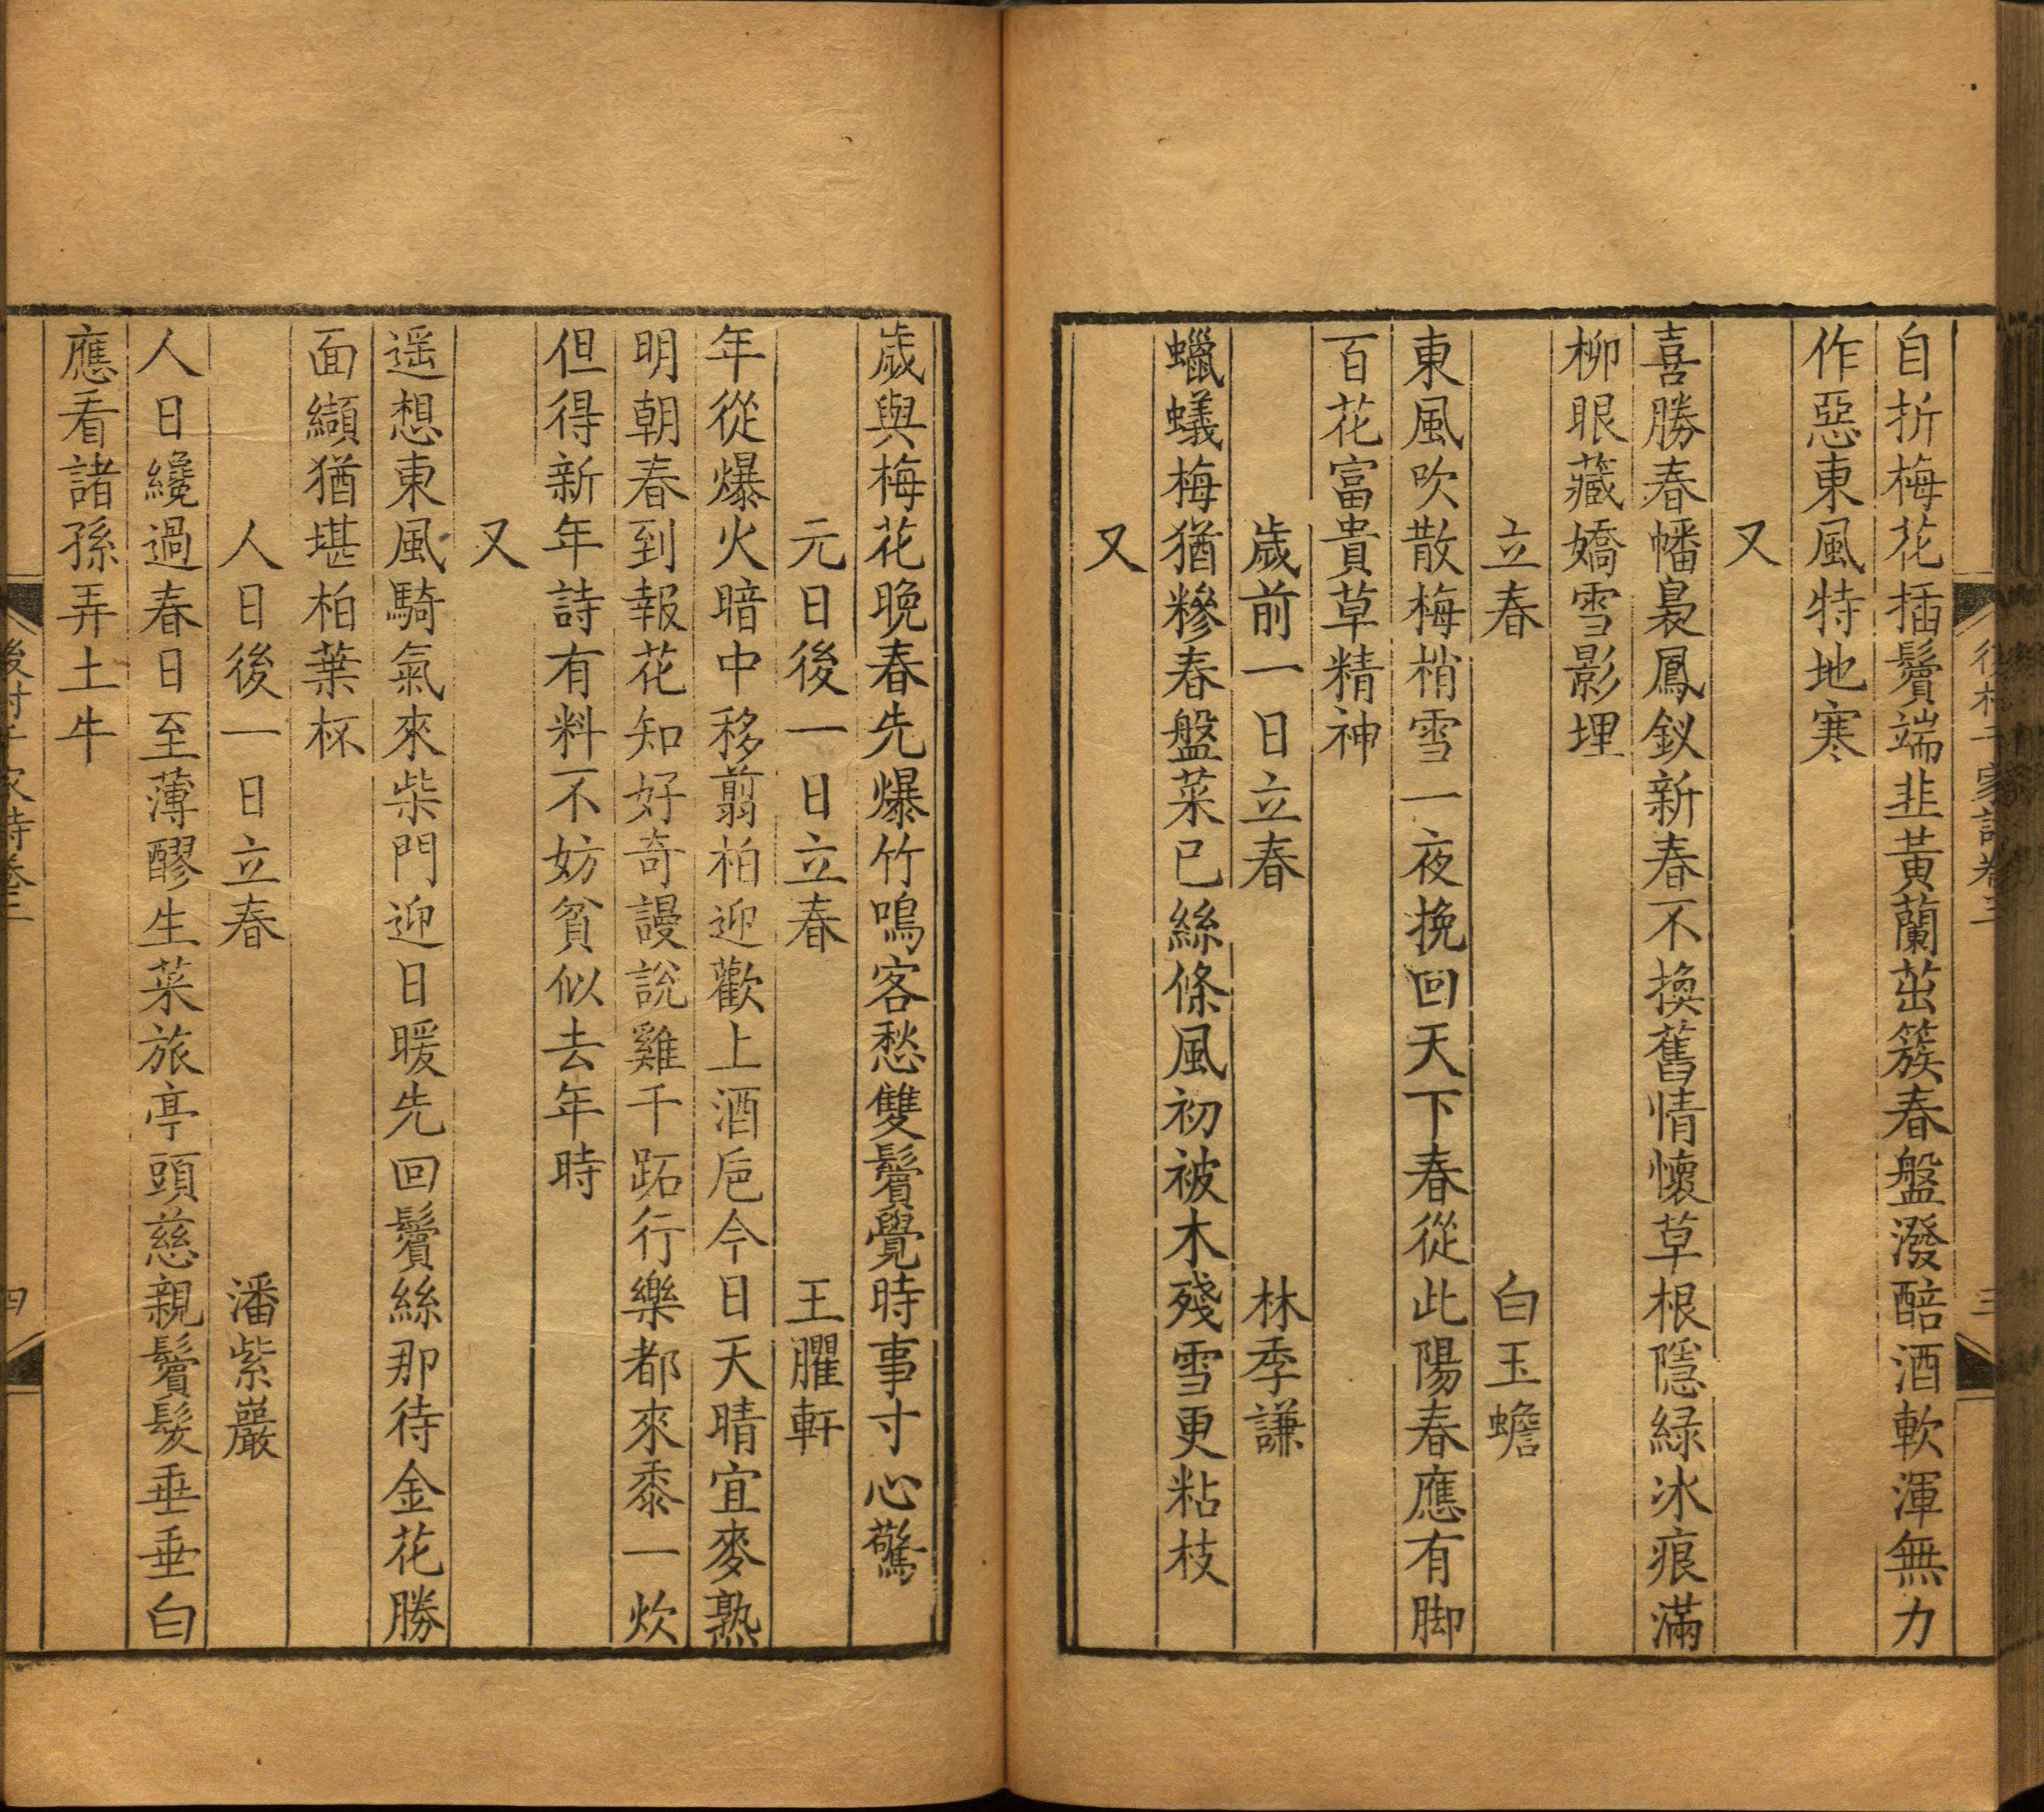 自折梅花插鬢端韭黃蘭茁簇春盤潑醅酒軟渾無力
作惡東風特地寒
又
喜勝春幡裊鳳釵新春不換舊情懷草根隱綠冰痕滿
柳眼藏嬌雪影埋
立春　白玉蟾
東風吹散梅梢雪一夜挽回天下春從此陽春應有脚
百花富貴草精神
歲前一日立春　林季謙
蠟蟻梅猶糝春盤菜已絲條風初被木殘雪更粘枝
又
歲與梅花晚春先爆竹鳴客愁雙鬢覺時事寸心驚
元日後一日立春　王臞軒
年從爆火暗中移剪柏迎歡上酒巵今日天晴宜麥熟
明朝春到報花知好奇謾說雞千跖行樂都來黍一炊
但得新年詩有料不妨貧似去年時
又
遥想東風騎氣來柴門迎日暖先回鬢絲那待金花勝
面纈猶堪柏葉杯
人日後一日立春　潘紫巖
人日纔過春日至薄醪生菜旅亭頭慈親鬢髮垂垂白
應看諸孫弄土牛